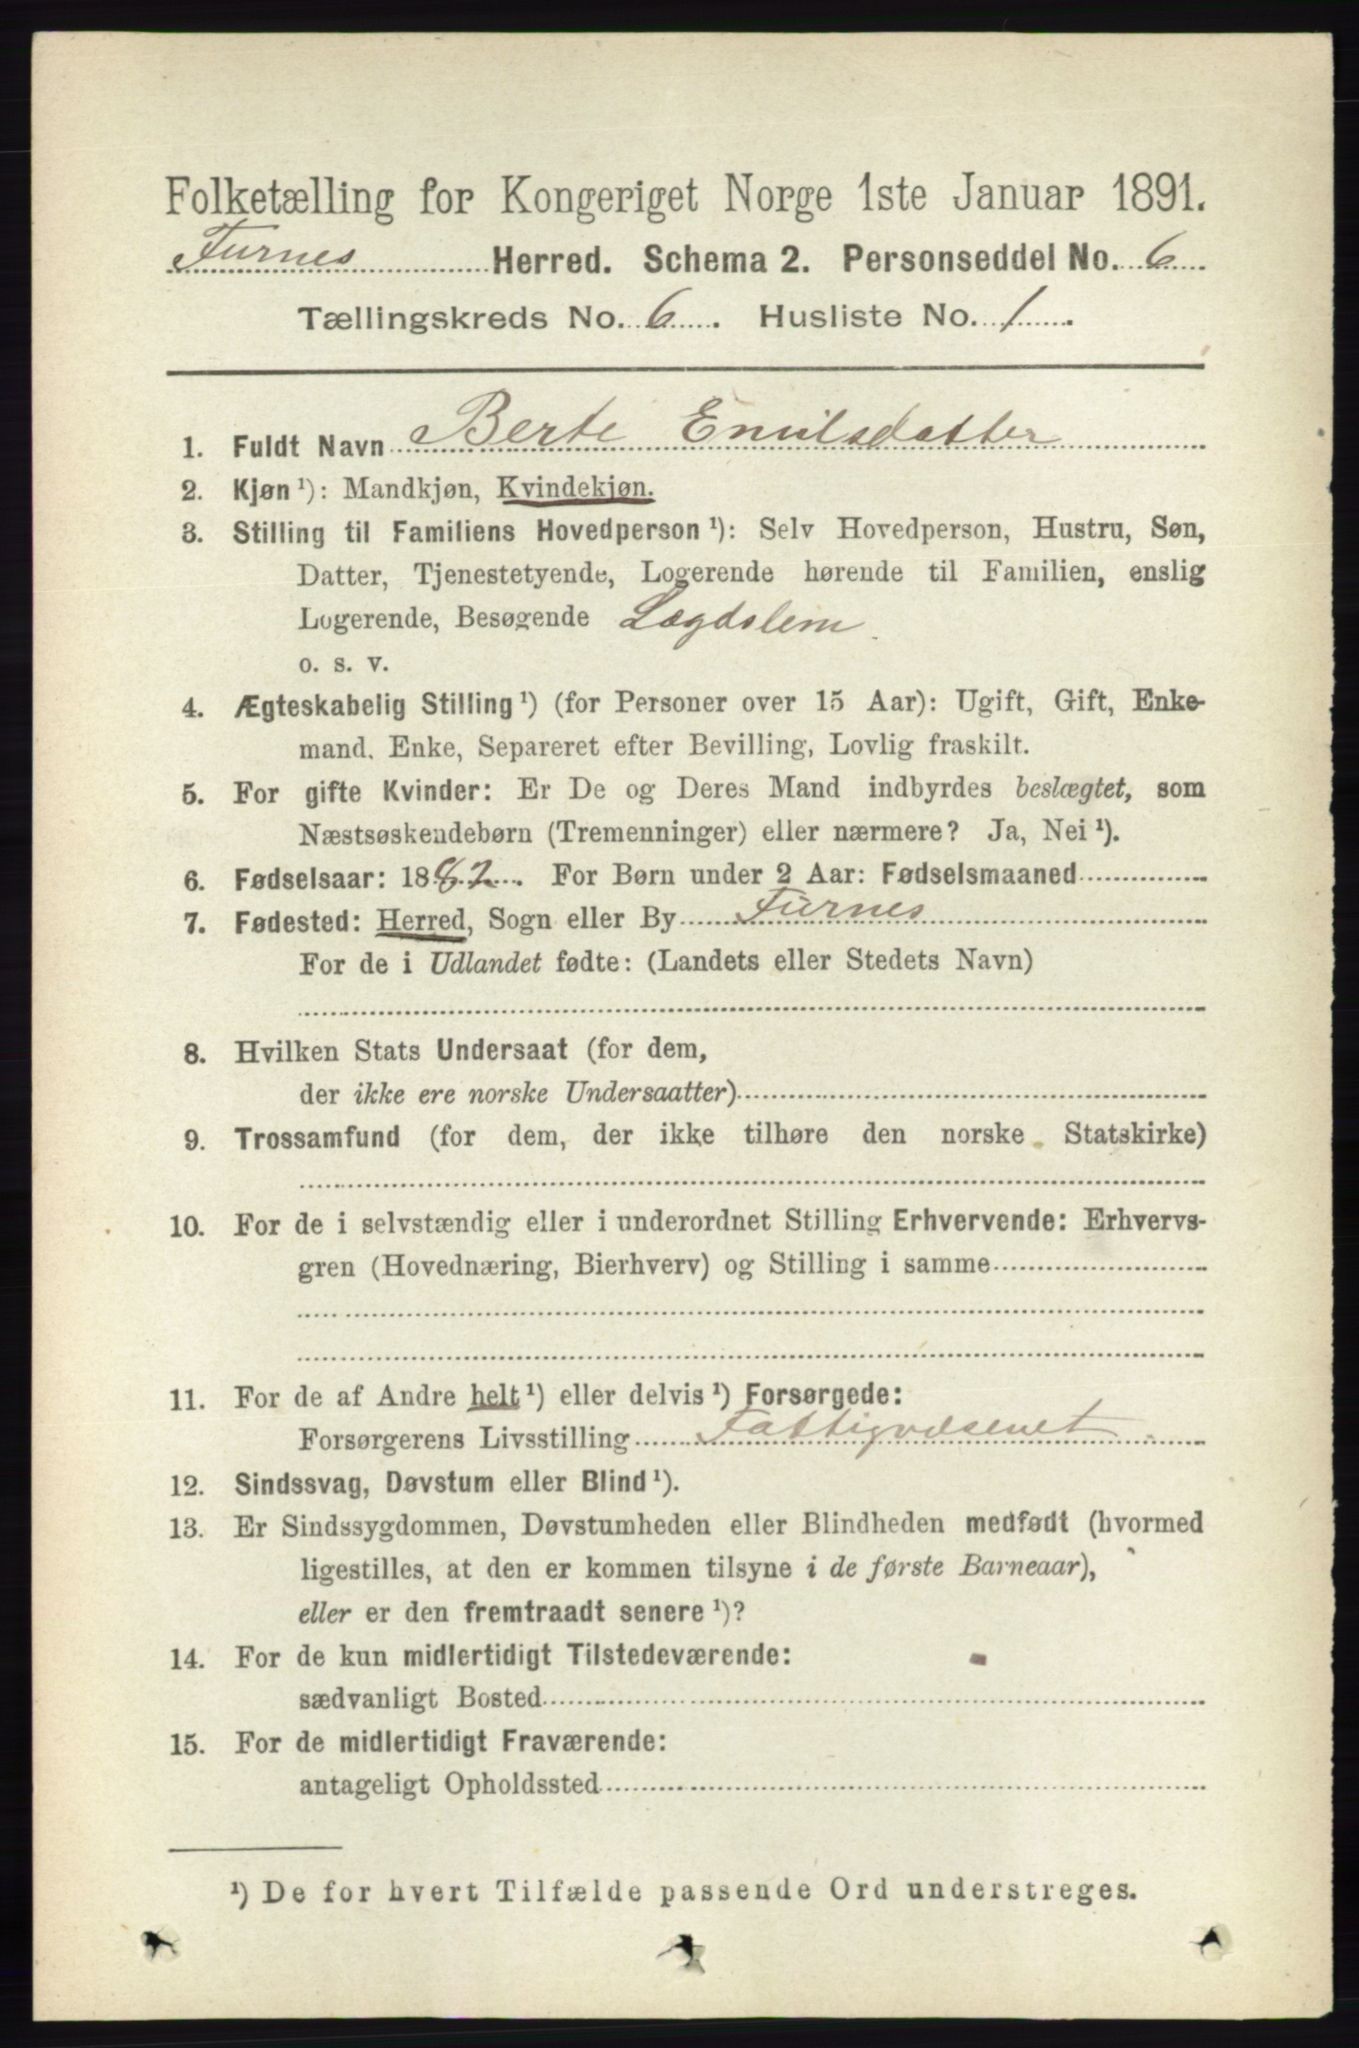 Folketælling for Kongeriget Norge 1ste Januar 1891.
Furnes Herred. Schema 2. Personseddel No. 6
Tællingskreds No. 6. Husliste No. 1.
1. Fuldt Navn Berte Emilsdatter
2. Kjøn ¹): Mandkjøn, Kvindekjøn.
3. Stilling til Familiens Hovedperson ¹): Selv Hovedperson, Hustru, Søn,
Datter, Tjenestetyende, Logerende hørende til Familien, enslig
Logerende, Besøgende Lægdslem.
o. s. v.
4. Ægteskabelig Stilling ¹) (for Personer over 15 Aar): Ugift, Gift, Enke-
mand, Enke, Separeret efter Bevilling, Lovlig fraskilt.
5. For gifte Kvinder: Er De og Deres Mand indbyrdes beslægtet, som
Næstsøskendebørn (Tremenninger) eller nærmere? Ja, Nei ¹).
6. Fødselsaar: 1882. For Børn under 2 Aar: Fødselsmaaned
7. Fødested: Herred, Sogn eller By Furnes
For de i Udlandet fødte: (Landets eller Stedets Navn)
8. Hvilken Stats Undersaat (for dem,
der ikke ere norske Undersaatter)
9. Trossamfund (for dem, der ikke tilhøre den norske Statskirke)
10. For de i selvstændig eller i underordnet Stilling Erhvervende: Erhvervs-
gren (Hovednæring, Bierhverv) og Stilling i samme
11. For de af Andre helt ¹) eller delvis ¹) Forsørgede:
Forsørgerens Livsstilling Fattigvæsenet.
12. Sindssvag, Døvstum eller Blind ¹).
13. Er Sindssygdommen, Døvstumheden eller Blindheden medfødt (hvormed
ligestilles, at den er kommen tilsyne i de første Barneaar),
eller er den fremtraadt senere ¹)?
14. For de kun midlertidigt Tilstedeværende:
sædvanligt Bosted
15. For de midlertidigt Fraværende:
antageligt Opholdssted
¹) De for hvert Tilfælde passende Ord understreges.